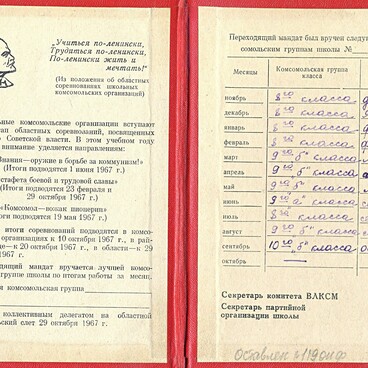 „Учиться по-ленински,
Трудиться по-ленински,
По-ленински жить и
мечтать!"
(Из положения об областных
соревнованиях школьных
комсомольских организаций)
ные комсомольские организации вступают
тап областных соревнований, посвященных
Советской власти. В этом учебном году
внимание уделяется направлениям:
Знания—оружие в борьбе за коммунизм!»
(Итоги подводятся 1 июня 1967 г.)
стафета боевой и трудовой славы»
(Итоги подводятся 23 февраля и
29 октября 1967 г.)
«Комсомол—вожак пионерии»
тоги подводятся 19 мая 1967 г.)
итоги соревнований подводятся в комсо-
организациях к 10 октября 1967 г., в рай-
де—к 20 октября 1967 г., в области—к 29
1967 г.
одящий мандат вручается лучшей комсо-
группе школы по итогам работы за месяц.
я комсомольская группа
коллективным делегатом на областной
ьский слет 29 октября 1967 г.
Переходящий мандат был вручен следую
сомольским группам школы №
Месяцы
Комсомольская группа
класса
ноябрь 8го класса
декабрь 8го класса
январь 8го класса
февраль 8го класса
март 9го „б" класса
апрель 9го „б" класса
май 9го „б" класса
июнь 9го „а" класса
июль 8го класса
август 9го „б" класса
сентябрь 10го „б" класса
октябрь —
Секретарь комитета ВЛКСМ
Секретарь партийной
организации школы
Оставлен